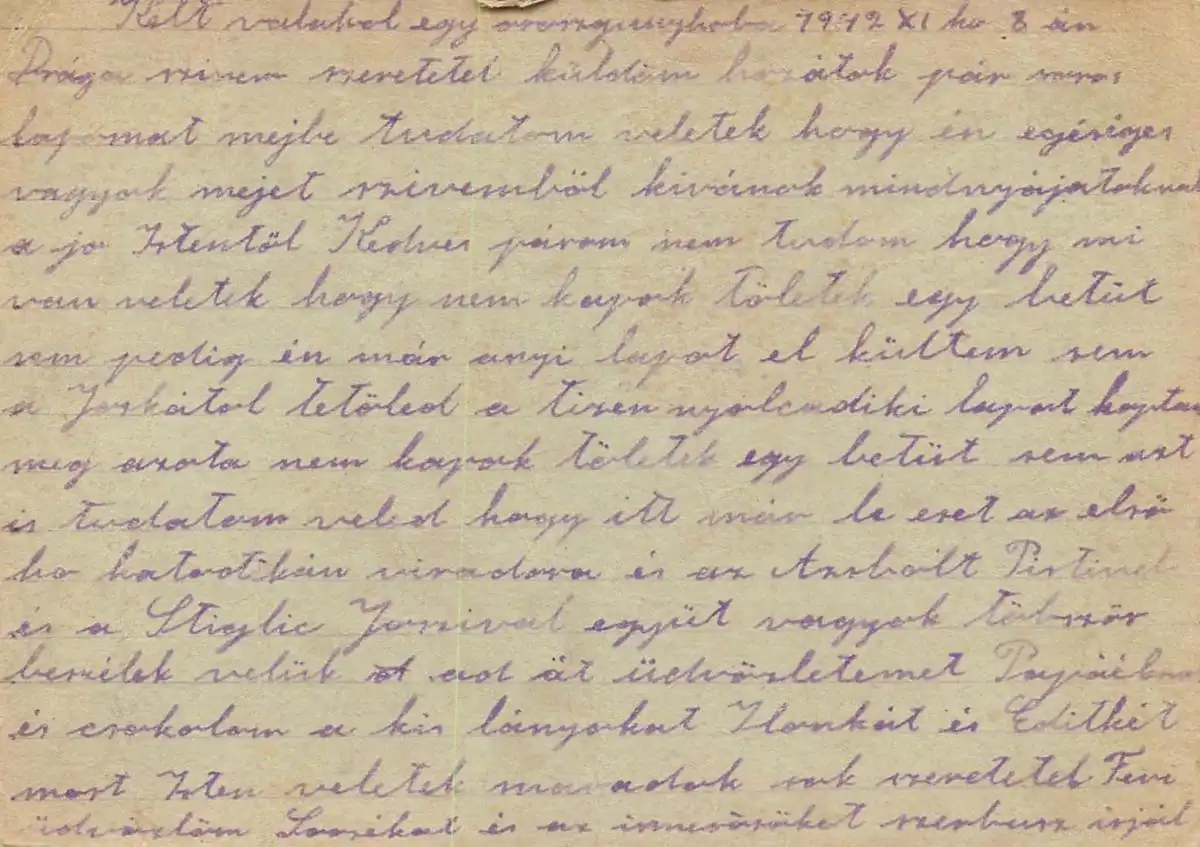 Kelt valahol egy oroszgunyhoba 1942 XI ho 8 án
Drága szivem szeretetel küldöm hozátok pár soros
lapomat mejbe tudatom veletek hogy én egéséges
vagyok mejet szivemböl kivánok mindnyájatoknak
a jo Istentöl Kedves párom nem tudom hogy mi
van veletek hogy nem kapok töletek egy betüt
sem pedig én már anyi lapot el kültem sem
a Joskátol tetöled a tizen nyolcadiki lapot kaptam
meg azota nem kapok töletek egy betüt sem azt
is tudatom veled hogy itt már le eset az elsö
ho katootikán viradora és az Azsbólt Pistivel
és a Stiglic Joszival együt vagyok töbször
beszélek velük ad át üdvözletemet
és csokolom a kis lányokat Ilonkát és Editkét
most Isten veletek maradok sok szeretetel Feri
üdvözlöm és az ismerösöket szerbusz irjál